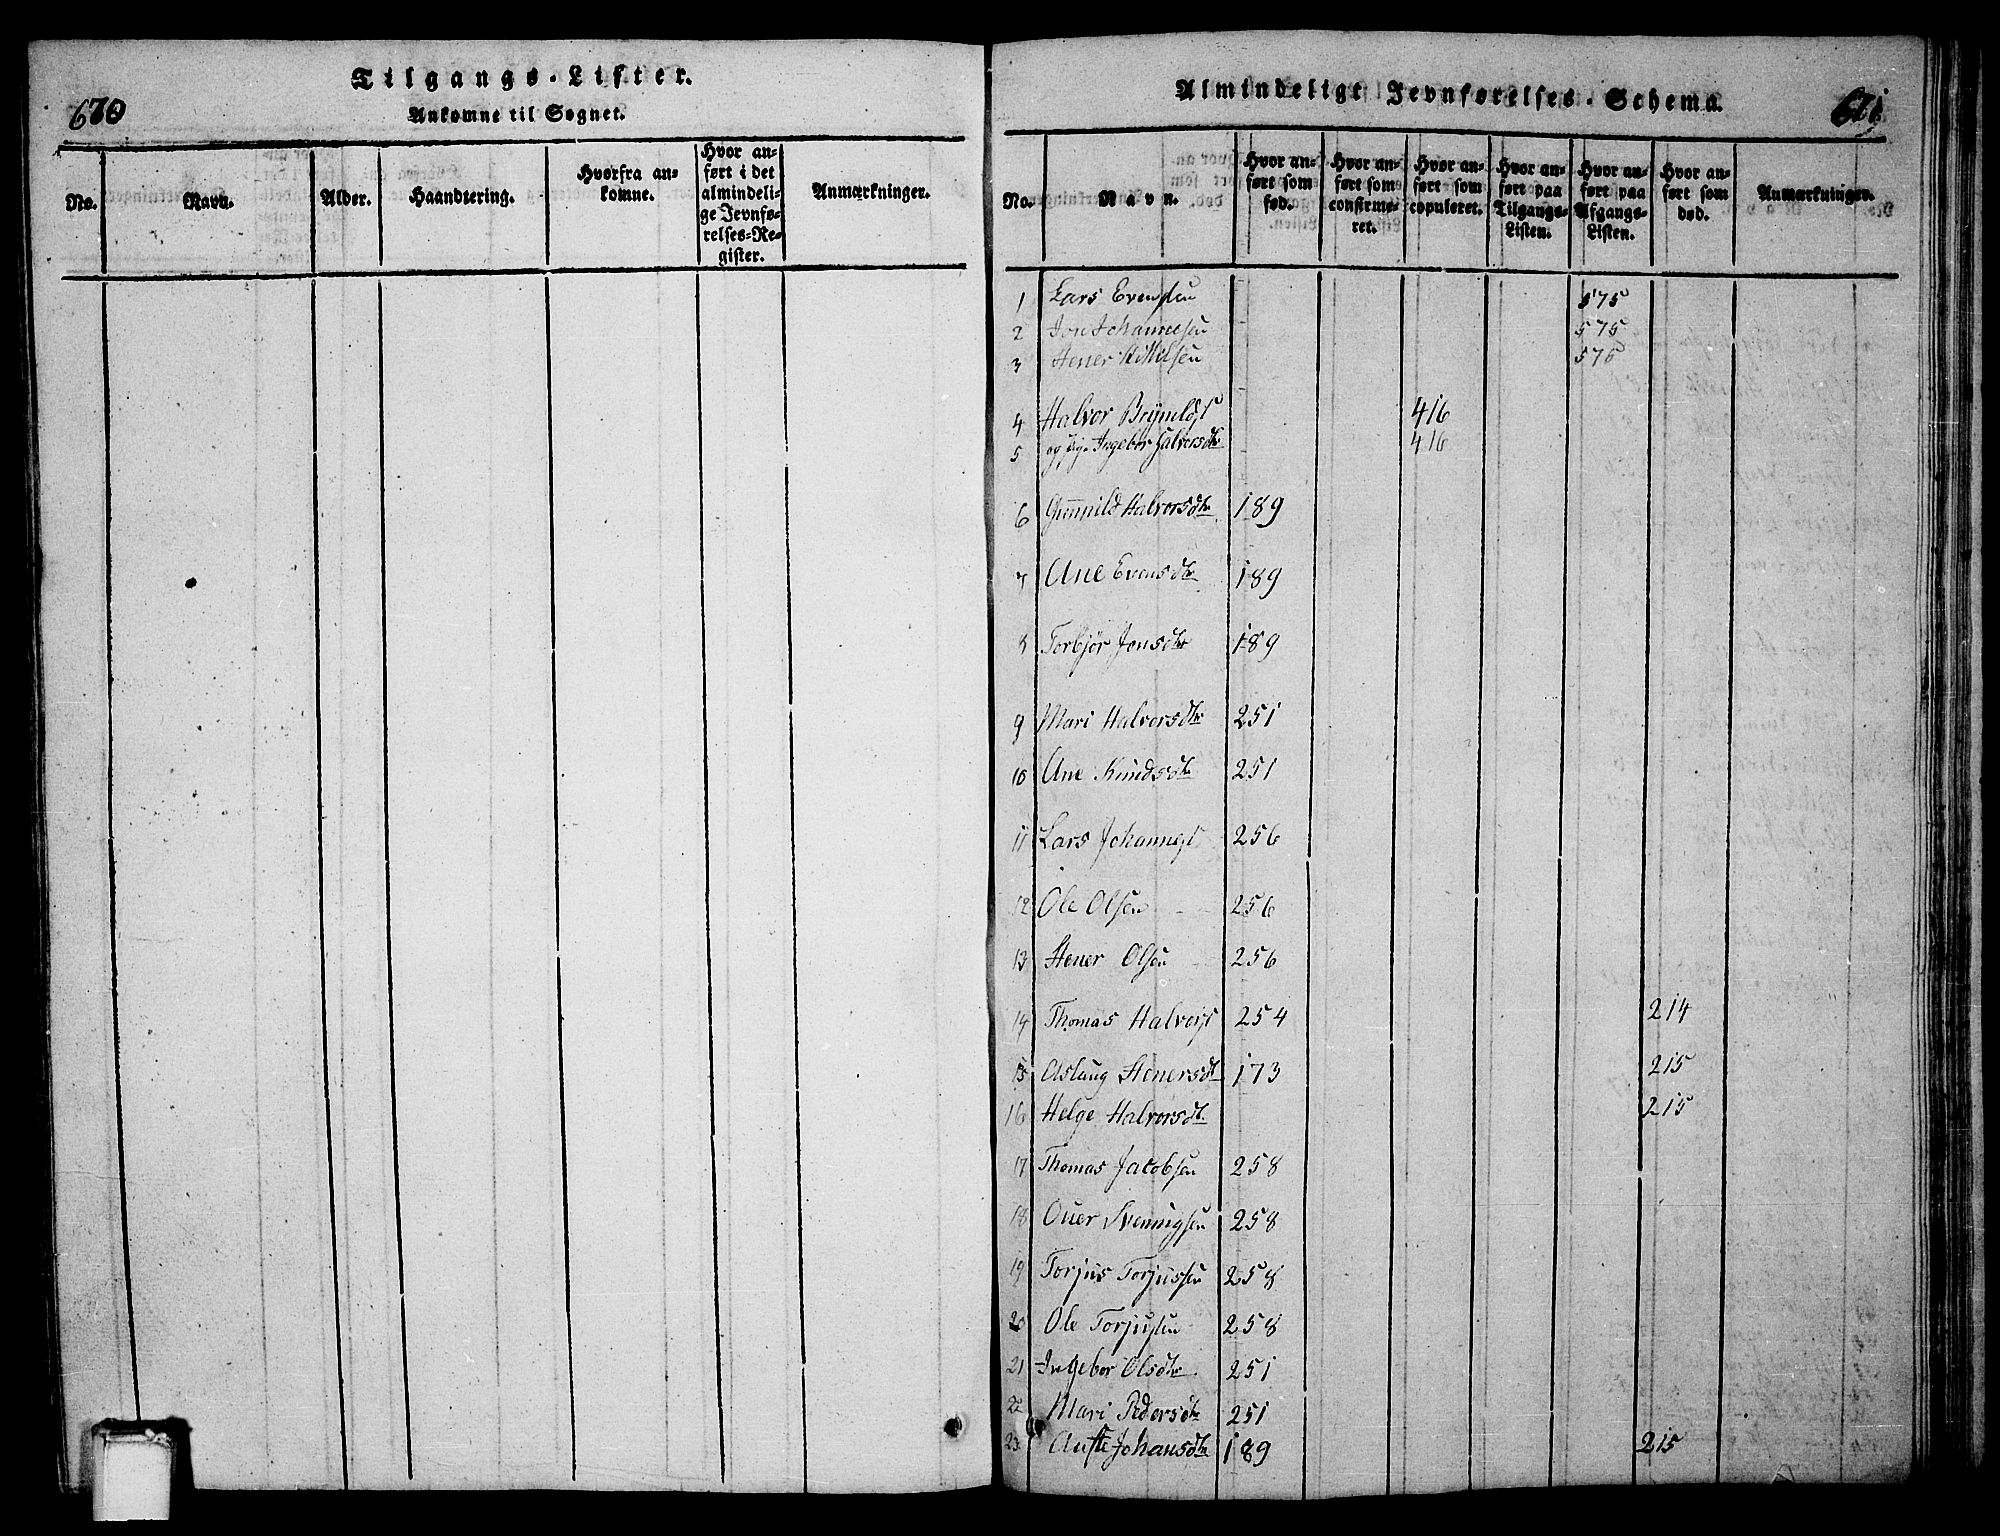 670
Tilgangs-Lister.
Ankomne til Sognet.
No.
Navn.
Alder.
Haandtering.
Hvorfra ankomne.
Hvor anført i det almindelige Jevnførelses-Register.
Anmærkninger.
Almindeligt Jevnførelses-Schema.
671
No.
Navn.
Hvor anført som fød.
Hvor anført som confirmeret.
Hvor anført som copuleret.
Hvor anført paa Tilgangs-Listen.
Hvor anført paa Afgangs-Listen.
Hvor anført som død.
Anmærkninger.
1 Lars Evensen 575
2 Jon Johannesen 575
3 Stener Kittilsen 575
4 Halvor Brynilds 416
5 og pig. Ingebor Halversdtr 416
6 Gunnild Halvorsdtr 189
7 Ane Evensdtr 189
8 Torbjør Jonsdtr 189
9 Mari Halvorsdtr 251
10 Ane Knudsdtr 251
11 Lars Johannes 256
12 Ole Olsen 256
13 Stener Olsen 256
14 Thomas Halvors 254 214
15 Aslaug Stenersdt 173 215
16 Helge Halvorsdtr 215
17 Thomas Jacobsen 258
18 Over Svennigsen 258
19 Torjus Torjussen 258
20 Ole Torjusen 258
21 Ingebor Olsdtr 251
22 Mari Pedersdtr 251
23 Johansdtr 189 215